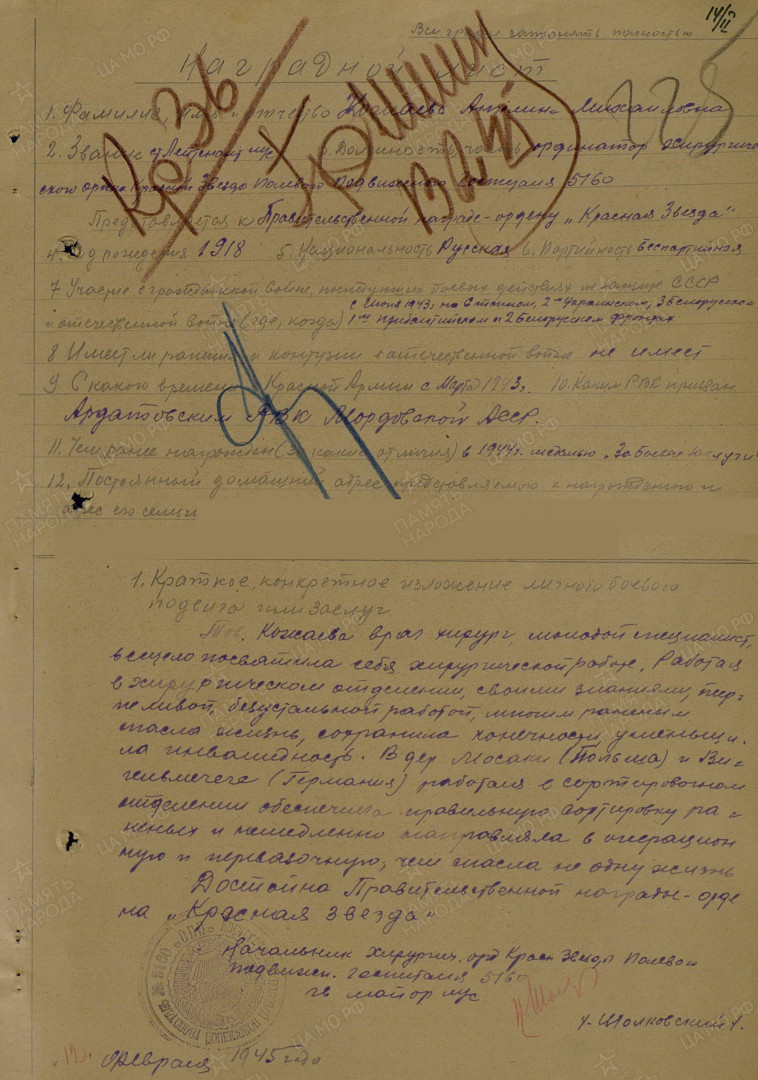 14/II
Все графы заполнять полностью
Наградной лист
1. Фамилия, имя и отчество Михайловна
2. Звание ст. Лейтенант м/с 3. Должность, часть ординатор Хирургиче
ского орд. Красной Звезды Полевого Подвижного госпиталя 5160
Представляется к Правительственной награде - ордену „Красная Звезда"
4. Год рождения 1918 5. Национальность Русская 6. Партийность беспартийная
7 Участие в гражданской войне, последующих боевых действиях по защите СССР
с Июня 1943, на Степном, 2ом Украинском, 3 Белорусском
и отечественной войне (где, когда) 1ом прибалтийском и 2 Белорусском фронтах
8 Имеет ли ранения и контузии в отечественной войне не имеет
9 С какого времени в Красной Армии с Марта 1943. 10. Каким РВК призван
Ардатовским РВК Мордовской АССР.
11. Чем ранее награжден (за какие отличия) в 1944г. медалью „За боевые заслуги"
12. Постоянный домашний адрес представляемого к награждению и
адрес его семьи
1. Краткое, конкретное изложение личного боевого
подвига или заслуг
Тов. Кожаева врач хирург, молодой специалист,
всецело посвятила себя хирургической работе. Работая
в хирургическом отделении, своими знаниями, тер-
пеливой, безустальной работой, многим раненым
спасла жизнь, сохранила конечности уменьши-
ла инвалидность. В дер Мосаки (Польша) и Ви-
(Германия) работая в сортировочном
отделении обеспечила правильную сортировку ра-
неных и немедленно направляла в операцион
ную и перевязочную, чем спасла не одну жизнь
Достойна Правительственной награды-орде
на „Красная Звезда"
Начальник хирургич. орд Красн Звезды Полевого
подвижн. госпиталя 5160
гв майор м/с
февраля 1945 года
ПАМЯТЬ НАРОДА
ЦАМО.РФ